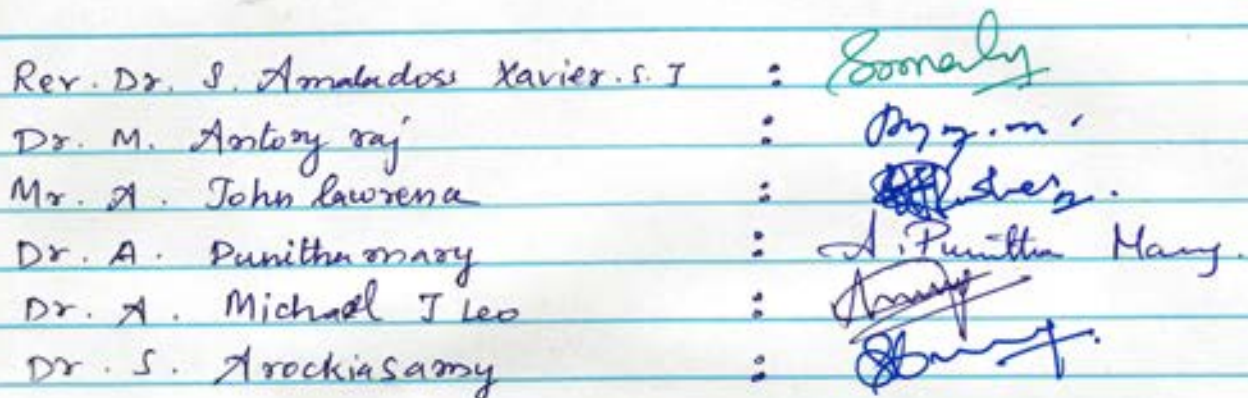 Rev. Dr. S. Amaladoss Xavier. S. J :
Dr. M. Antony raj :
Mr. A. John lawrence :
Dr. A. Punitha mary : A. Punitha Mary.
Dr. A. Michael J Leo :
Dr. S. Arockiasamy :